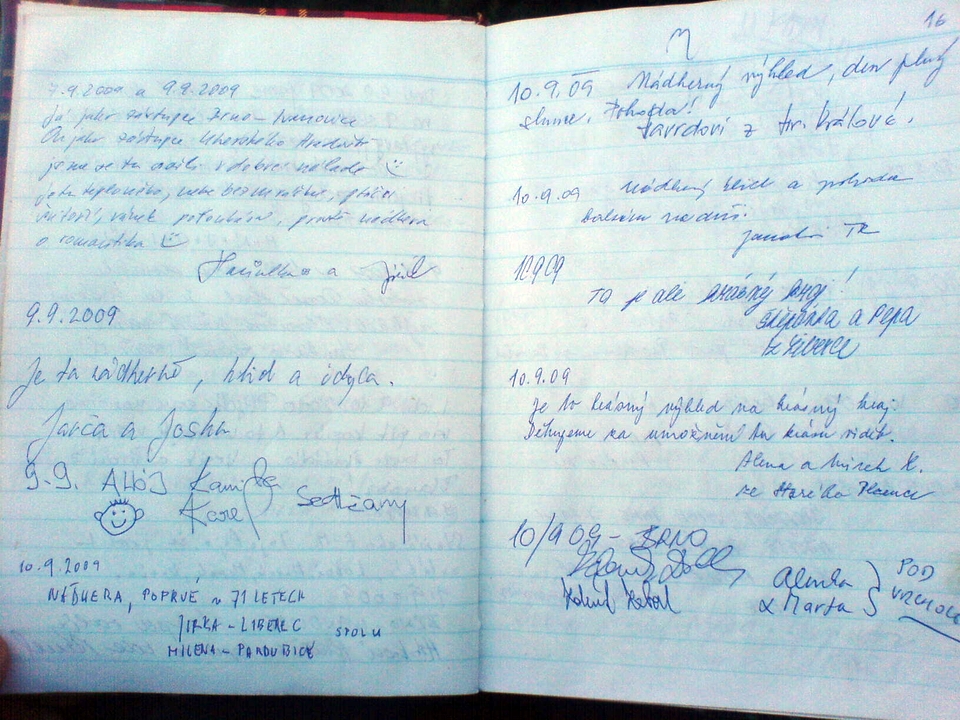 7.9.2009 a 9.9.2009
Já jako zástupce Brno-Ivanovice
On jako zástupce Uherského Hradiště
jsme se tu ocitli v dobré náladě
je tu teploučko, nebe bez mráčku, ptáčci
větérek potoučku, prostě nádhera
a romantika
a Jiří
9.9.2009
Je tu nádherně, klid a idyla.
Jarča a Joshu
9.9. AHOJ Kamilka
Karel Sedlčany
10.9.2009
NÁDHERA, POPRVÉ v 71 LETECH
JIRKA - LIBEREC
SPOLU
MILENA - PARDUBICE
16
10.9.09 Nádherný výhled, den plný
slunce. Pohoda!
Tavrdovi z Hr. Králové.
10.9.09 Nádherný klid a pohoda
TR
10909
To je ale krásný kraj!
Štěpánka a Pepa
z Liberce
10.9.09
Je to krásný výhled na krásný kraj.
Děkujeme za umožnění tu krásu vidět.
Alena a Mirek K.
ze Starého Plzence
10/9 09 - BRNO
Alenka
& Marta
POD
VRCHOLEM